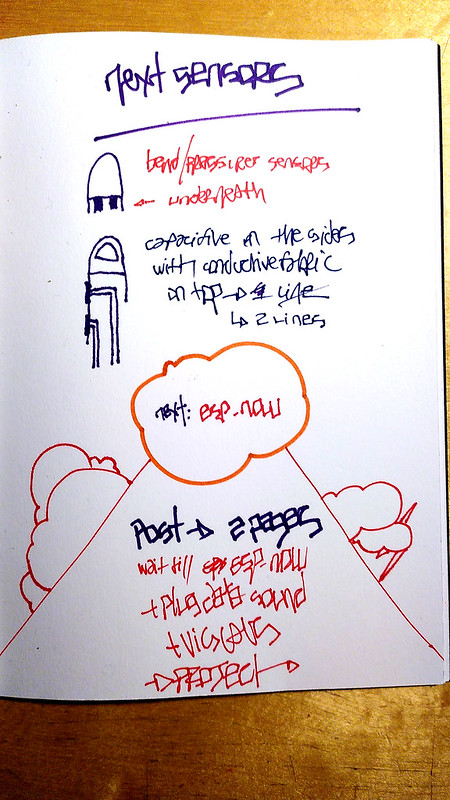 next sensors
bend/pressure sensors
← underneath
capacitive on the sides
with conductive fabric
on top → 1 line
↳ 2 lines
next: esp-now
Post → 2 pages
wait till esp-now
+ plug data sound
+ visuals
→ PROJECT →